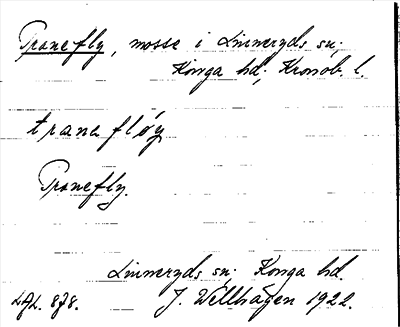 Tranefly, mosse i Linneryds sn;
Konga hd; Kronob. l.
tranafløy
Tranefly.
Linneryds sn. Konga hd.
J. Wéllhagen 1922.